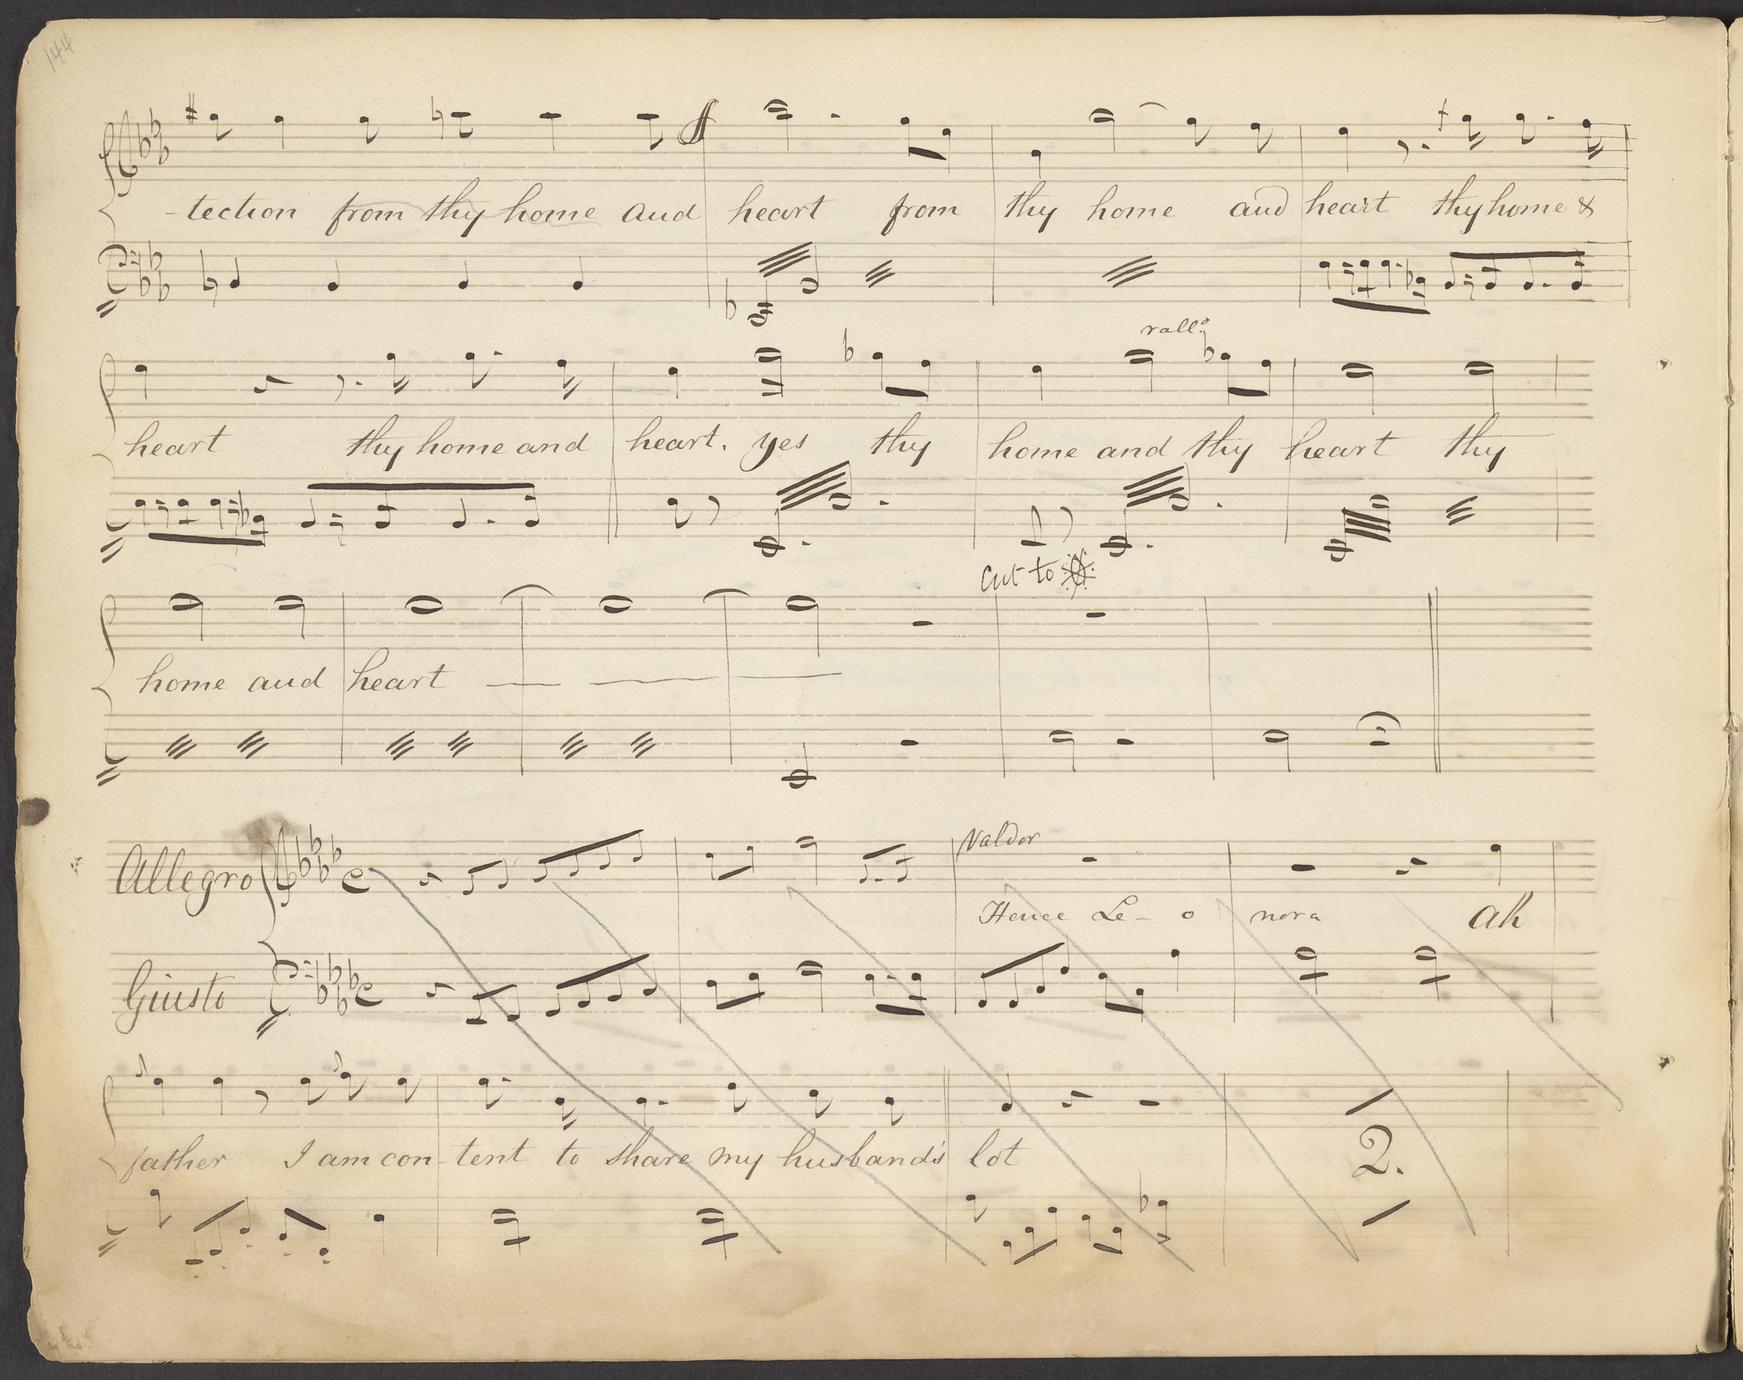 144
-tection from thy home and heart from thy home and heart thy home &
rallo
heart thy home and heart. yes thy home and thy heart thy
Cut to
home and heart
Allegro Valdor
Hence Le- o nora ah
Giusto
father I am con- tent to share my husband's lot
2.